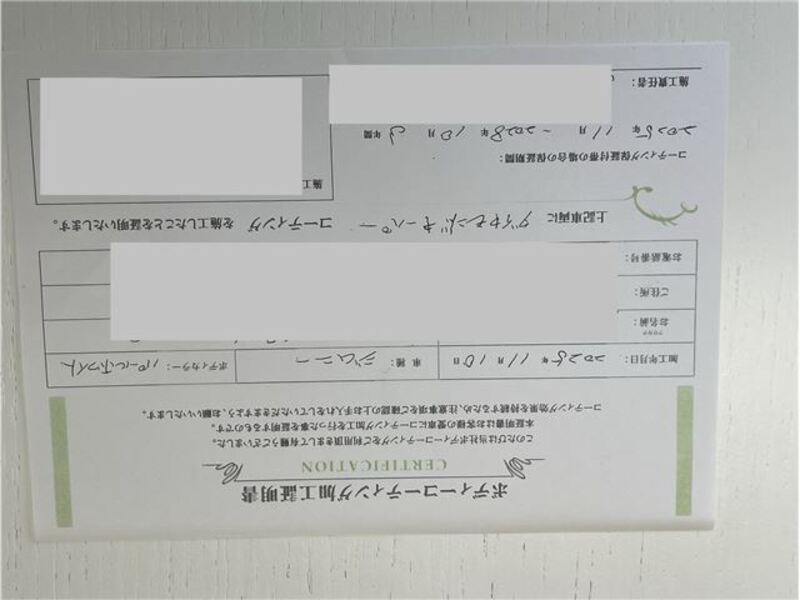 ボディーコーティング加工証明書
CERTIFICATION
このたびは当社ボディーコーティングをご利用頂きまして有難うございました。
本証明書はお客様の愛車にコーティング加工を行った事を証明するものです。
コーティング効果を持続するため、注意事項をご確認の上お手入れをしていただきますよう、お願いいたします。
加工年月日: 2025年 11月 10日 車種: ジムニー ボディカラー: パールホワイト
フリガナ
お名前:
ご住所:
お電話番号:
上記車両に ダイヤモンドキーパー コーティング を施工したことを証明いたします。
コーティング保証付帯の場合の保証期間:
2025年 11月 ~ 2028年 10月 3年間
施工
施工責任者: